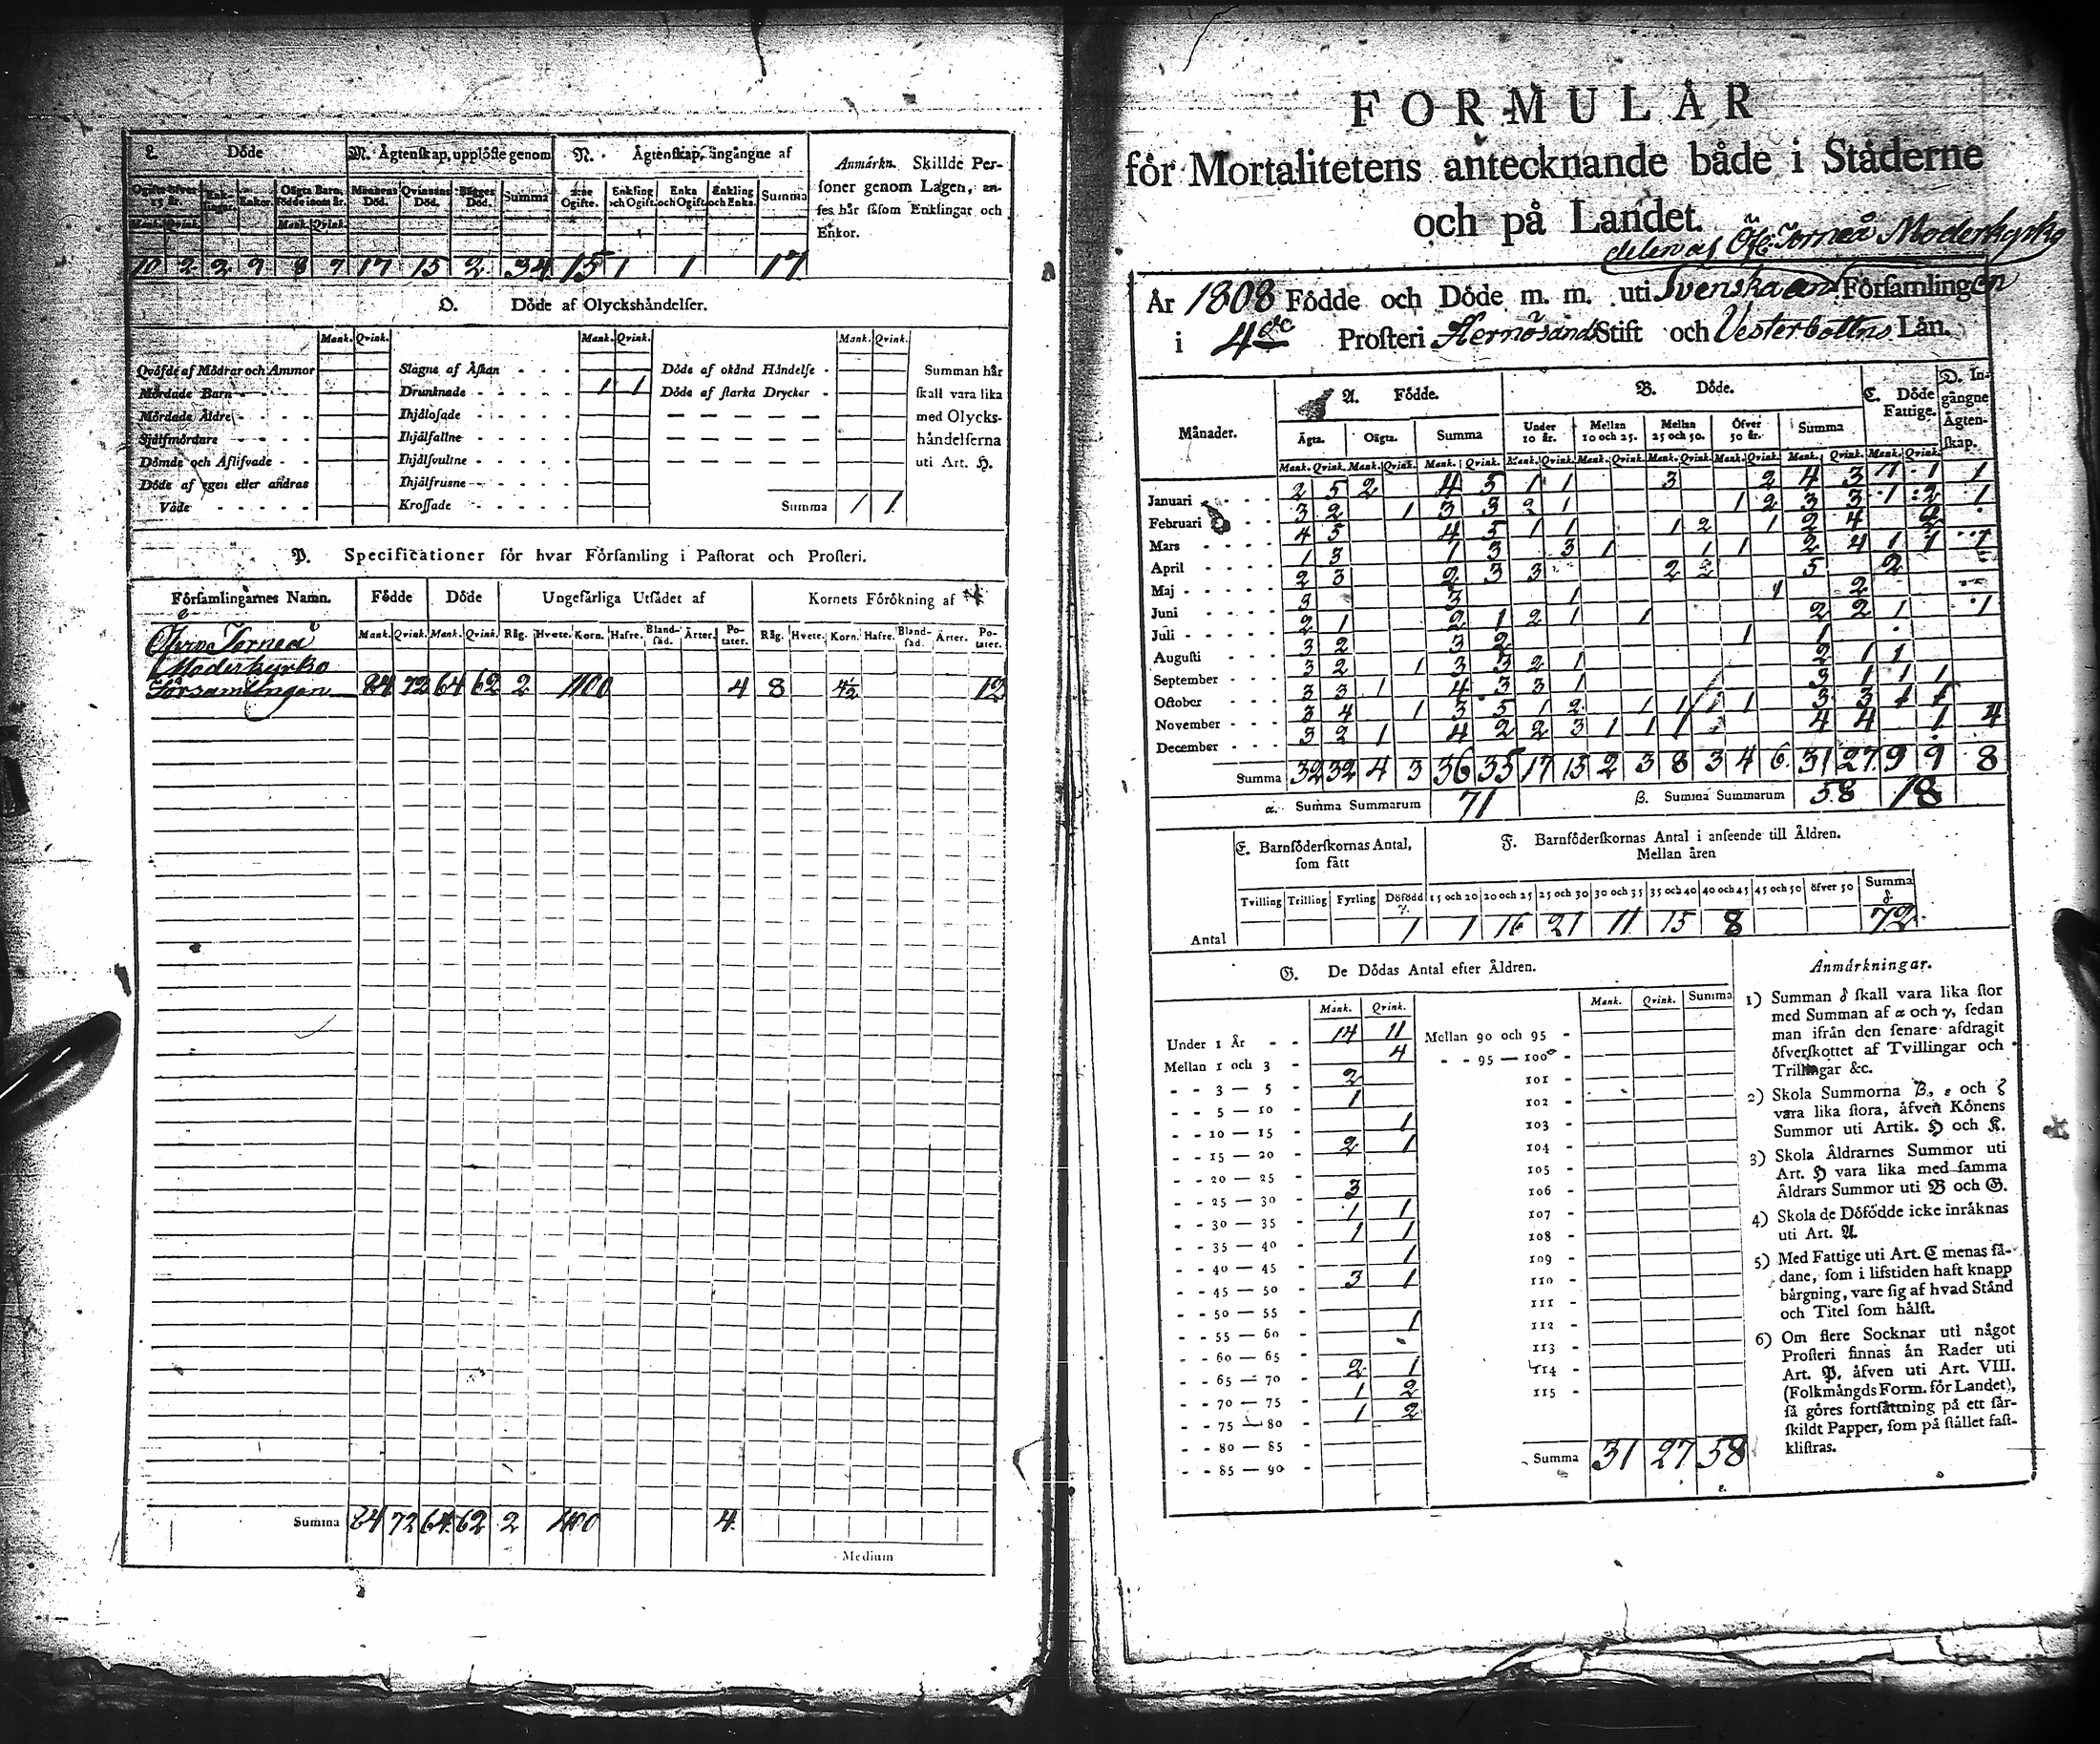 L. Döde
M. Ägtenskap, upplöste genom
N. Ägtenskap, ingångne af
Anmärkn. Skillde Per-
soner genom Lagen, an-
ses här såsom Enklingar och
Enkor.
Ogifte öfver 15 år. Enk-lingar. Enkor. Oägta Barn, födde inom år. Mannens Död. Qvinnans Död. Bägges Död. Summa 2:ne Ogifte. Enkling och Ogift. Enka och Ogift. Enkling och Enka. Summa
Mank. Qvink. Mank. Qvink.
10 2 2 9 8 7 17 15 2 34 15 1 1 17
O. Döde af Olyckshändelser.
Mank. Qvink. Mank. Qvink. Mank. Qvink.
Qväfde af Mödrar och Ammor Slagne af Åskan - - - Döde af okänd Händelse - Summan här
Mördade Barn - - - Drunknade - - - 1 1 Döde af starka Drycker - skall vara lika
Mördade Äldre - - - Ihjälosade - - - med Olycks-
Sjelfmördare - - - Ihjälfallne - - - händelserna
Dömde och Aflifvade - - Ihjälsvultne - - - uti Art. H.
Döde af egen eller andras Ihjälfrusne - - -
Våde - - - - - Krossade - - - - Summa 1 1
P. Specificationer för hvar Församling i Pastorat och Prosteri.
Församlingarnes Namn. Födde Döde Ungefärliga Utsädet af Kornets Förökning af
Mank. Qvink. Mank. Qvink. Råg. Hvete. Korn. Hafre. Bland-säd. Ärter. Po-tater. Råg. Hvete. Korn. Hafre. Bland-säd. Ärter. Po-tater.
Öfver Torneå
Moderkyrko
Församlingen 84 72 64 62 2 400 4 8 4½ 12
Summa 84 72 64 62 2 400 4
Medium
FORMULÄR
för Mortalitetens antecknande både i Städerne
och på Landet.
delen af Öfr: Torneå Moderkyrko
År 1808 Födde och Döde m. m. uti Svenska Församlingen
i 4de Prosteri Hernösands Stift och Vesterbottns Län.
Månader. A. Födde. B. Döde. C. Döde Fattige. D. In-gångne Ägten-skap.
Ägta. Oägta. Summa Under 10 år. Mellan 10 och 25. Mellan 25 och 50. Öfver 50 år. Summa
Mank. Qvink. Mank. Qvink. Mank. Qvink. Mank. Qvink. Mank. Qvink. Mank. Qvink. Mank. Qvink. Mank. Qvink. Mank. Qvink.
Januari - - - 2 5 2 4 5 1 1 3 2 4 3 1 1 1
Februari - - 3 2 1 3 3 2 1 1 2 3 3 1 2 1
Mars - - - - 4 5 4 5 1 1 1 2 1 2 4 2
April - - - - 1 3 1 3 3 1 1 1 2 4 1 1 1
Maj - - - - 2 3 2 3 3 2 2 5 2
Juni - - - - 3 3 1 1 2
Juli - - - - 2 1 2 1 2 1 1 2 2 1 1
Augusti - - - 3 2 3 2 1 1
September - - - 3 2 1 3 3 2 1 2 1 1
October - - - 3 3 1 4 3 3 1 3 1 1 1
November - - - 3 4 1 3 5 1 2 1 1 1 1 3 3 1 1
December - - - 3 2 1 4 2 2 3 1 1 1 4 4 1 4
Summa 32 32 4 3 36 35 17 15 2 3 8 3 4 6 31 27 9 9 8
α. Summa Summarum 71 β. Summa Summarum 58 18
E. Barnföderskornas Antal, som fått
F. Barnföderskornas Antal i anseende till Åldren.
Mellan åren
Tvilling Trilling Fyrling Dödfödd γ. 15 och 20 20 och 25 25 och 30 30 och 35 35 och 40 40 och 45 45 och 50 öfver 50 Summa δ.
Antal 1 1 16 21 11 15 8 72
G. De Dödas Antal efter Åldren.
Mank. Qvink. Mank. Qvink. Summa
Under 1 År - - 14 11 Mellan 90 och 95 -
Mellan 1 och 3 - 4 - - 95 — 100 -
- - 3 — 5 - 2 101 -
- - 5 — 10 - 1 102 -
- - 10 — 15 - 1 103 -
- - 15 — 20 - 2 1 104 -
- - 20 — 25 - 105 -
- - 25 — 30 - 3 106 -
- - 30 — 35 - 1 1 107 -
- - 35 — 40 - 1 1 108 -
- - 40 — 45 - 1 109 -
- - 45 — 50 - 3 1 110 -
- - 50 — 55 - 111 -
- - 55 — 60 - 1 112 -
- - 60 — 65 - 113 -
- - 65 — 70 - 2 1 114 -
- - 70 — 75 - 1 2 115 -
- - 75 — 80 - 1 2
- - 80 — 85 -
- - 85 — 90 - Summa 31 27 58
Anmärkningar.
1) Summan δ skall vara lika stor
med Summan af α och γ, sedan
man ifrån den senare afdragit
öfverskottet af Tvillingar och
Trillingar &c.
2) Skola Summorna β, ε och ζ
vara lika stora, äfven Könens
Summor uti Artik. H och K.
3) Skola Åldrarnes Summor uti
Art. H vara lika med samma
Åldrars Summor uti B och G.
4) Skola de Dödfödde icke inräknas
uti Art. A.
5) Med Fattige uti Art. C menas så-
dane, som i lifstiden haft knapp
bärgning, vare sig af hvad Stånd
och Titel som hälst.
6) Om flere Socknar uti något
Prosteri finnas än Rader uti
Art. P. äfven uti Art. VIII.
(Folkmängds Form. för Landet),
så göres fortsättning på ett sär-
skildt Papper, som på stället fast-
klistras.